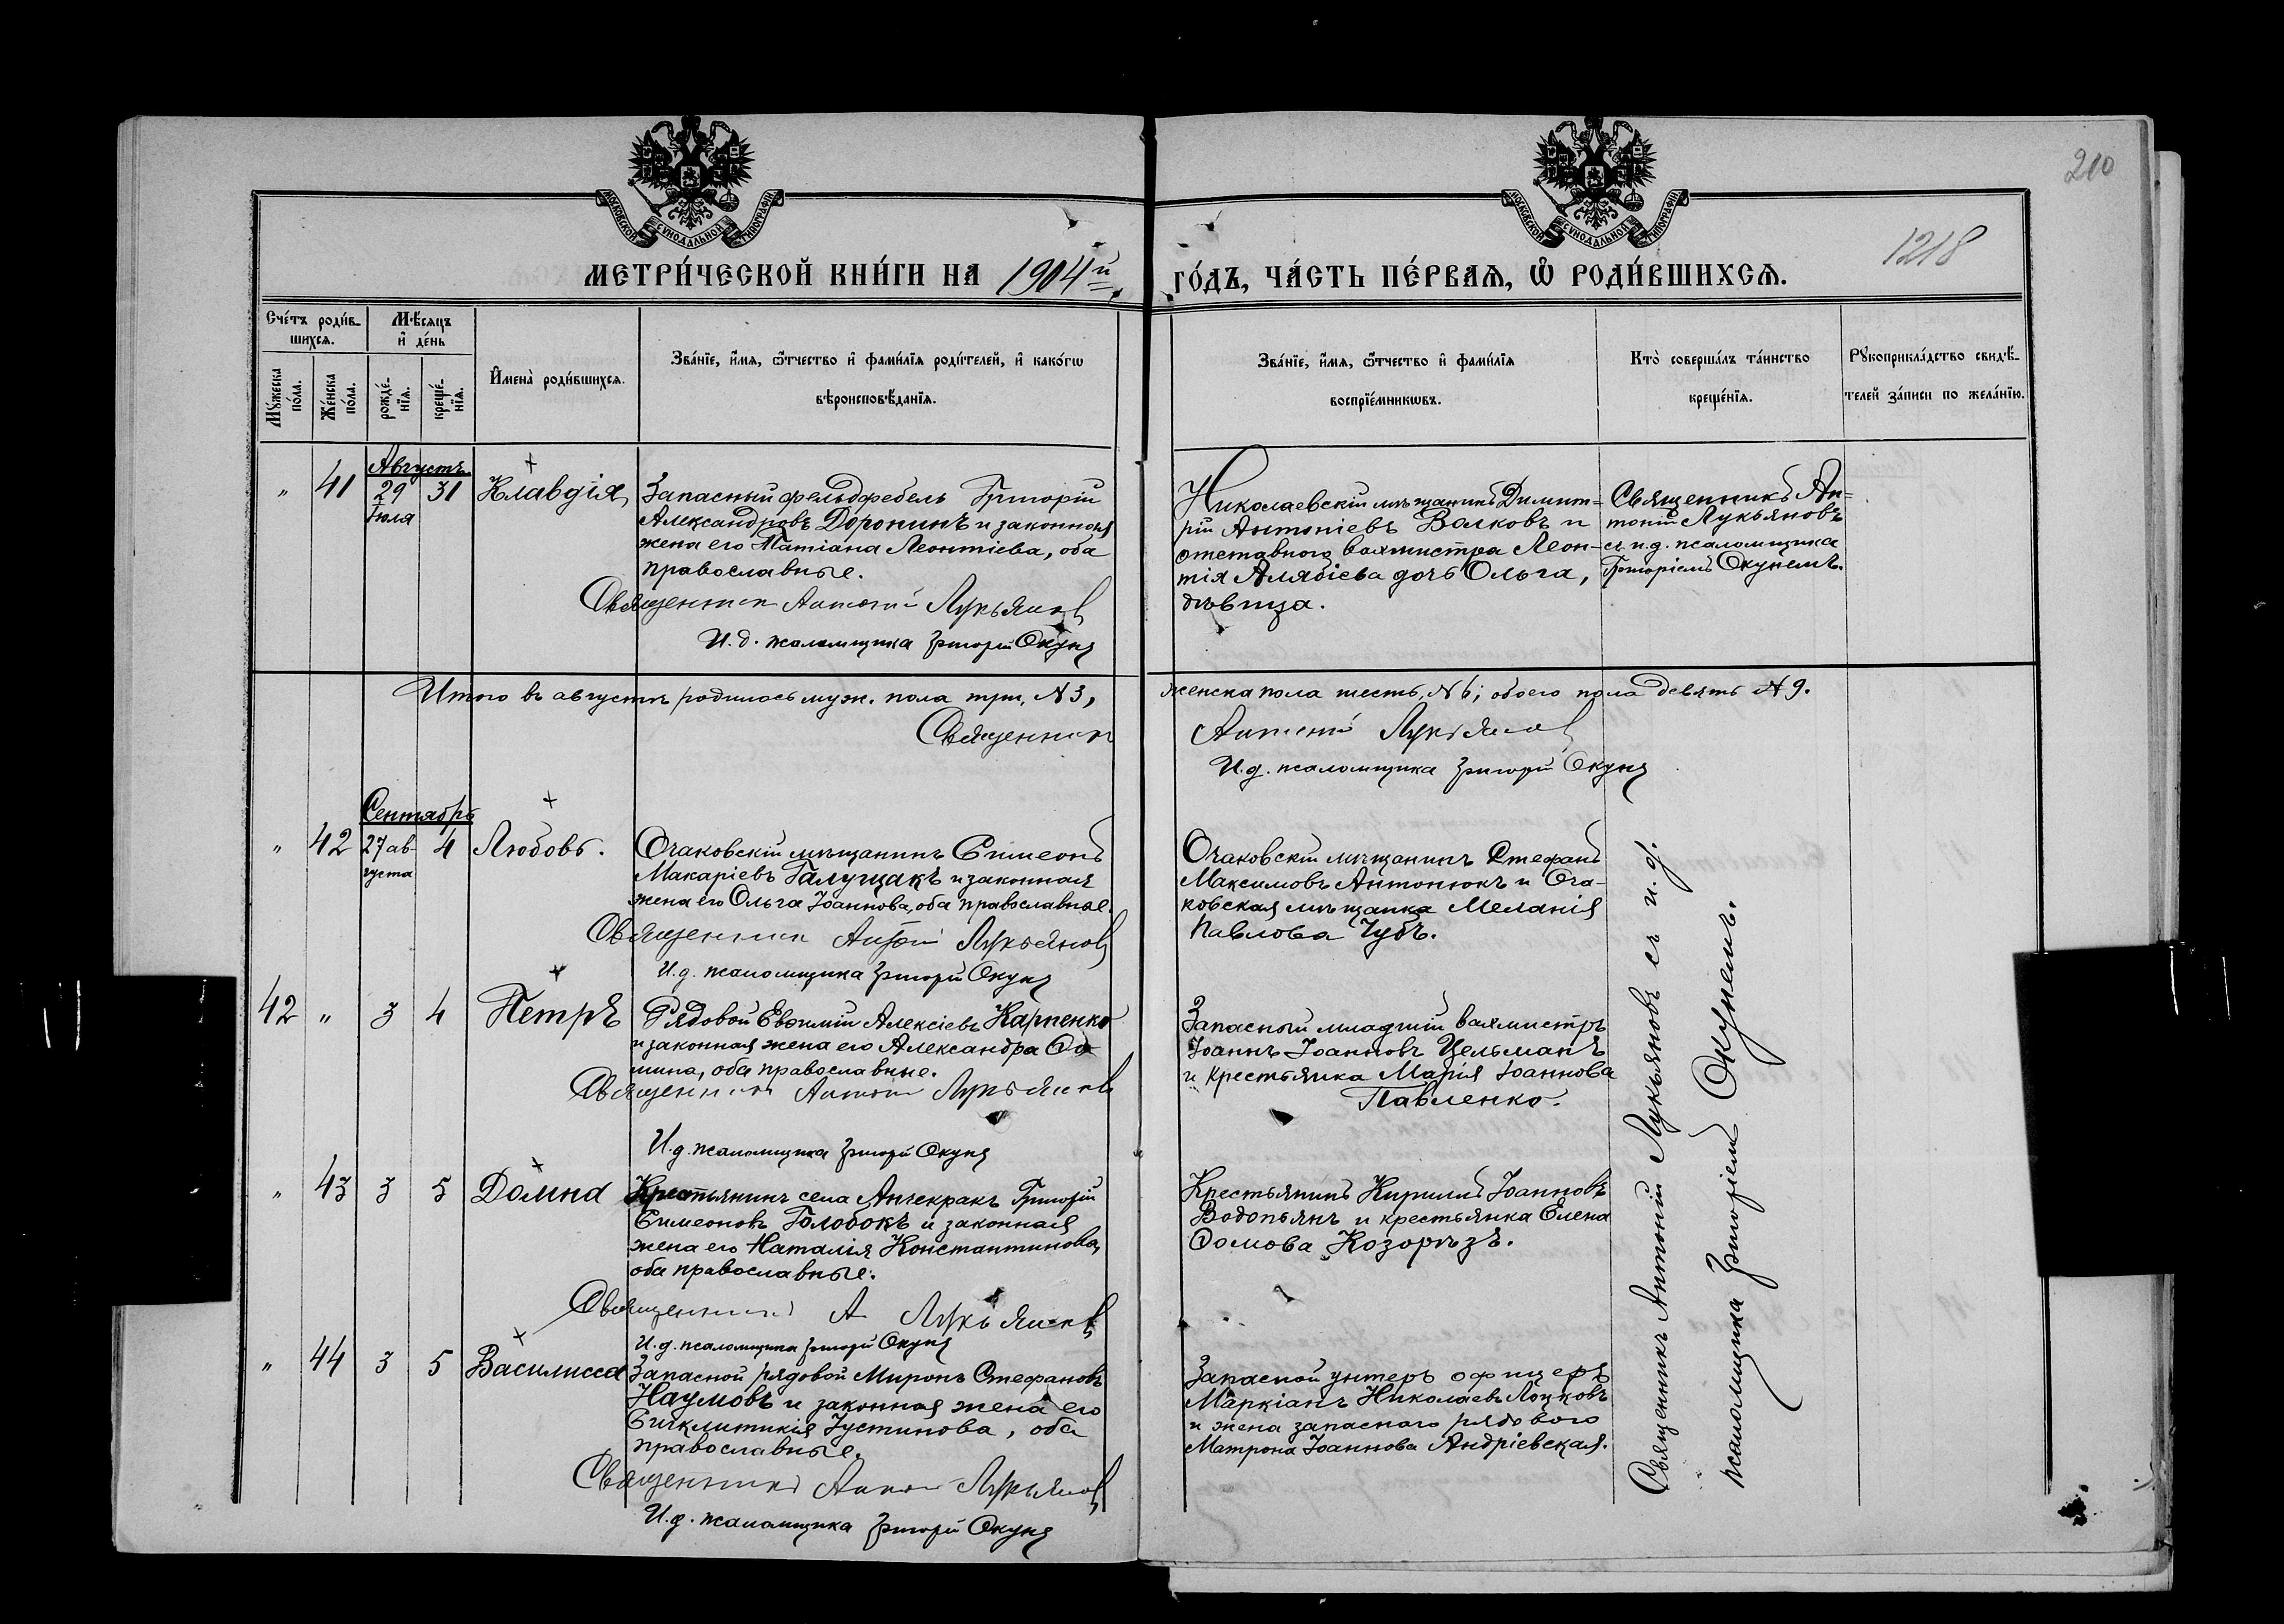 210
1218
МОСКОВСКОЙ СѴНОДАЛЬНОЙ ТИПОГРАФІИ
МОСКОВСКОЙ СѴНОДАЛЬНОЙ ТИПОГРАФІИ
МЕТРИ́ЧЕСКОЙ КНИ́ГИ НА 1904й ГО́ДЪ, ЧА́СТЬ ПЕ́РВАѦ, Ѡ РОДИ́ВШИХСѦ.
Сче́тъ роди́в-
шихсѧ.
Мѣ́сѧцъ
и де́нь
Мꙋ́жеска
по́ла.
Же́нска
по́ла.
рожде́-
нїѧ.
креще́-
нїѧ.
Имена̀ роди́вшихсѧ.
Зва́нїе, и́мѧ, ѻ҆́тчество и фами́лїѧ роди́телей, и како́гѡ
вѣроисповѣ́данїѧ.
Зва́нїе, и́мѧ, ѻ҆́тчество и фами́лїѧ
воспрїе́мникѡвъ.
Кто̀ соверша́лъ та́инство
креще́нїѧ.
Рꙋкоприкла́дство свидѣ́-
телей за́писи по жела́нїю.
Августъ
" 41 29 31 Клавдія
Іюля
Запасный фельдфебель Григорій
Александровъ Доронинъ и законная
жена его Татіана Леонтіева, оба
православные.
Священник Антоній Лукьянов
И.д. псаломщика Григорій Окунь
Николаевскій мѣщанинъ Димит-
рій Антоніевъ Волковъ и
отставного вахмистра Леон-
тія Алябіева дочь Ольга,
дѣвица.
Священникъ Ан-
тоній Лукьяновъ
съ и.д. псаломщика
Григоріемъ Окунемъ.
Итого въ августѣ родилось муж. пола три, №3, женска пола шесть, №6; обоего пола девять №9.
Священник Антоній Лукьянов
И.д. псаломщика Григорій Окунь
Сентябрь
" 42 27 ав- 4 Любовь.
густа
Очаковскій мѣщанинъ Симеонъ
Макаріевъ Галущакъ и законная
жена его Ольга Іоаннова, оба православные.
Священник Антоній Лукьянов
И.д. псаломщика Григорій Окунь
Очаковскій мѣщанинъ Стефанъ
Максимовъ Антонюкъ и Оча-
ковская мѣщанка Меланія
Павлова Чубъ.
42 " 3 4 Петръ
Рядовой Евѳимій Алексіевъ Карпенко
и законная жена его Александра Ѳо
мина, оба православные.
Священник Антоній Лукьянов
И.д. псаломщика Григорій Окунь
Запасный младшій вахмистръ
Іоаннъ Іоанновъ Цельманъ
и крестьянка Марія Іоаннова
Павленко.
" 43 3 5 Домна
Крестьянинъ села Анчекракъ Григорій
Симеоновъ Голобокъ и законная
жена его Наталія Константинова,
оба православные.
Священник А Лукьянов
И.д. псаломщика Григорій Окунь
Крестьянинъ Кириллъ Іоанновъ
Водопьянъ и крестьянка Елена
Ѳомова Козорѣзъ.
" 44 3 5 Василисса
Запасной рядовой Миронъ Стефановъ
Наумовъ и законная жена его
Сигклитикія Іустинова, оба
православные.
Священник Антоній Лукьянов
И.д. псаломщика Григорій Окунь
Запасной унтеръ офицеръ
Маркіанъ Николаевъ Лоцковъ
и жена запаснаго рядового
Матрона Іоаннова Андріевская.
Священникъ Антоній Лукьяновъ съ и.д.
псаломщика Григоріемъ Окунемъ.